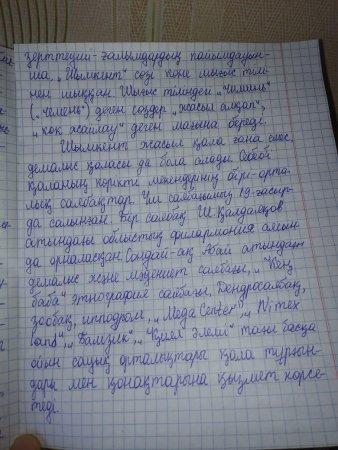 зерттеуші-ғалымдардың пайымдауын-
ша, „Шымкент" сөзі көне шығыс тілі-
нен шыққан. Шығыс тіліндегі „чимин"
(„чемень") деген сөздер „жасыл алқап",
„көк жайлау" деген мағына береді.
Шымкент жасыл қала ғана емес,
демалыс қаласы да бола алады. Себебі
қаланың көрікті мекендерінің бірі-орта-
лық саябақтар. Үш саябағының 19-ғасыр-
да салынған. Бір саябақ Ш. Қалдаяқов
атындағы облыстық филармония алдын-
да орналасқан. Сондай-ақ Абай атындағы
демалыс және мәдениет саябағы, „Кең
баба" этнография саябағы, Дендросаябақ,
зообақ, ипподром, „Mega Center",
land", „Бамзик", „Қиял әлемі" тағы басқа
ойын сауық орталықтары қала тұрғын-
дары мен қонақтарына қызмет көрсе-
теді.